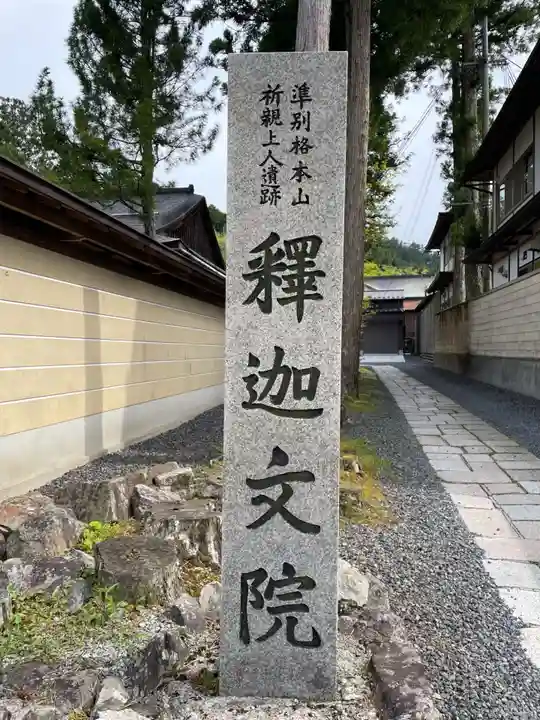 準別格本山
祈親上人遺跡
釋迦文院